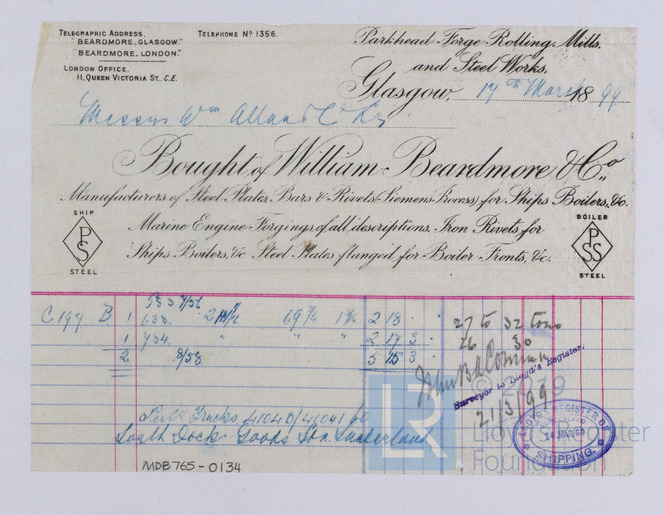 TELEGRAPHIC ADDRESS,
"BEARDMORE, GLASGOW."
"BEARDMORE, LONDON."
TELEPHONE No 1356.
LONDON OFFICE,
11, QUEEN VICTORIA ST., E.C.
Parkhead Forge Rolling Mills,
and Steel Works,
Glasgow, 17th March 1899
Messrs Wm Allan & Co
Bought of William Beardmore & Co.
Manufacturers of Steel Plates, Bars & Rivets (Siemens Process) for Ships Boilers, &c.
Marine Engine Forgings of all descriptions, Iron Rivets for
Ships Boilers, &c Steel Plates flanged for Boiler Fronts, &c.
SHIP
PS
STEEL
BOILER
PSS
STEEL
C 197 B 1 638. 2 18
1 784. " " " 2 17 3
2 5 15 3
27 to 32 tons
26 30
Surveyor to Lloyd's Register.
21/3/99
Trucks 41040/41041 to
South Dock Goods Stn Sunderland
LLOYD'S REGISTER OF
SHIPPING.
LR
© 2019
Lloyd's Register
Foundation
MDB765-0134